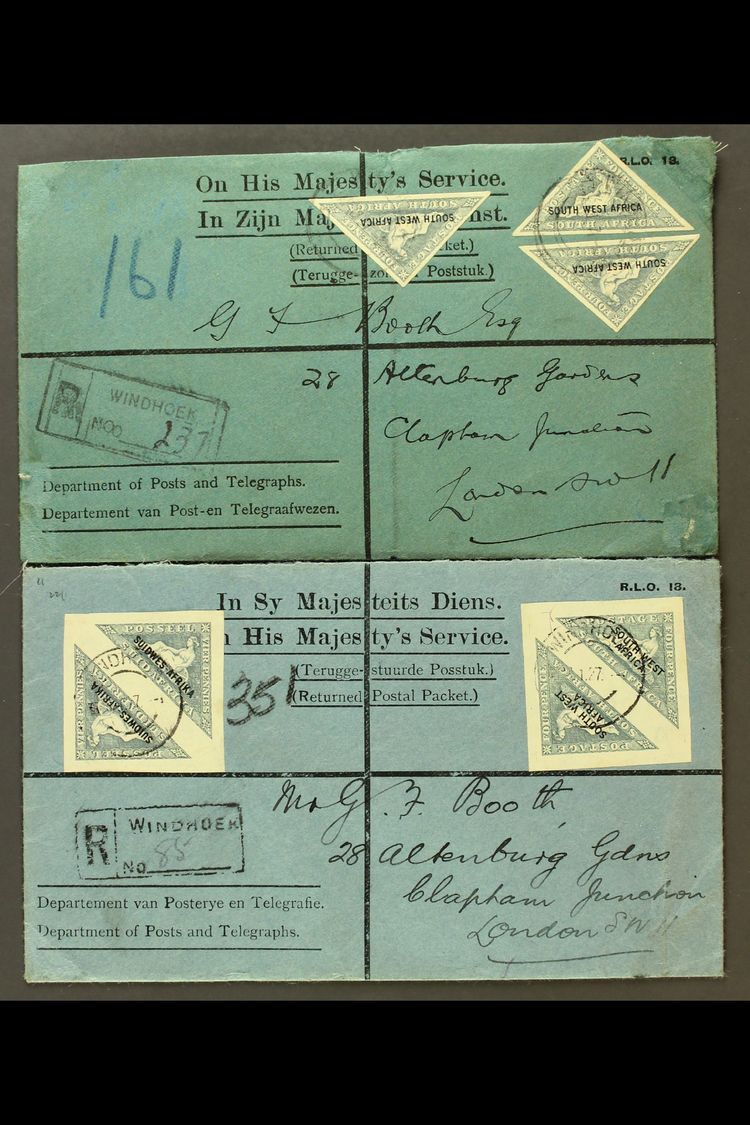 R.L.O. 13.
On His Majesty's Service.
In Zijn Maj nst.
(Returned ket.)
(Terugge- zo Poststuk.)
SOUTH AFRICA
SOUTH WEST AFRICA
SOUTH WEST AFRICA
SOUTH AFRICA
SOUTH AFRICA
SOUTH WEST AFRICA
161
G F Booth Esq
28 Altenburg Gardens
Clapham Junction
London SW 11
R WINDHOEK
No 237
Department of Posts and Telegraphs.
Departement van Post-en Telegraafwezen.
R.L.O. 13.
In Sy Majesteits Diens.
n His Majesty's Service.
(Terugge-stuurde Posstuk.)
(Returned Postal Packet.)
POSSEEL
VIER PENNIES
SUIDWES AFRIKA
SUIDWES-AFRIKA
VIER PENNIES
POSSEEL
351
POSTAGE
FOURPENCE
SOUTH WEST
AFRICA
SOUTH WEST
AFRICA
FOURPENCE
POSTAGE
Mr G. F. Booth,
28 Altenburg Gdns
Clapham Junction
London SW 11
R WINDHOEK
No 85
Departement van Posterye en Telegrafie.
Department of Posts and Telegraphs.